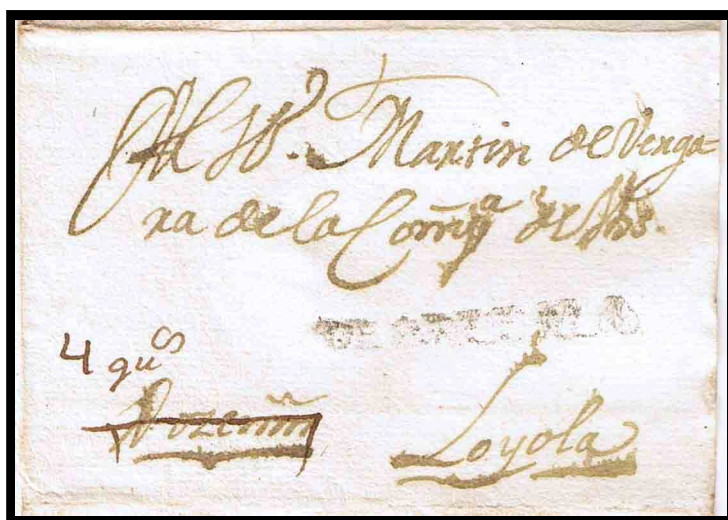 Al H.º Martin de Verga=
ra de la Comp.ª de Jhs.
4 qu.os
Loyola